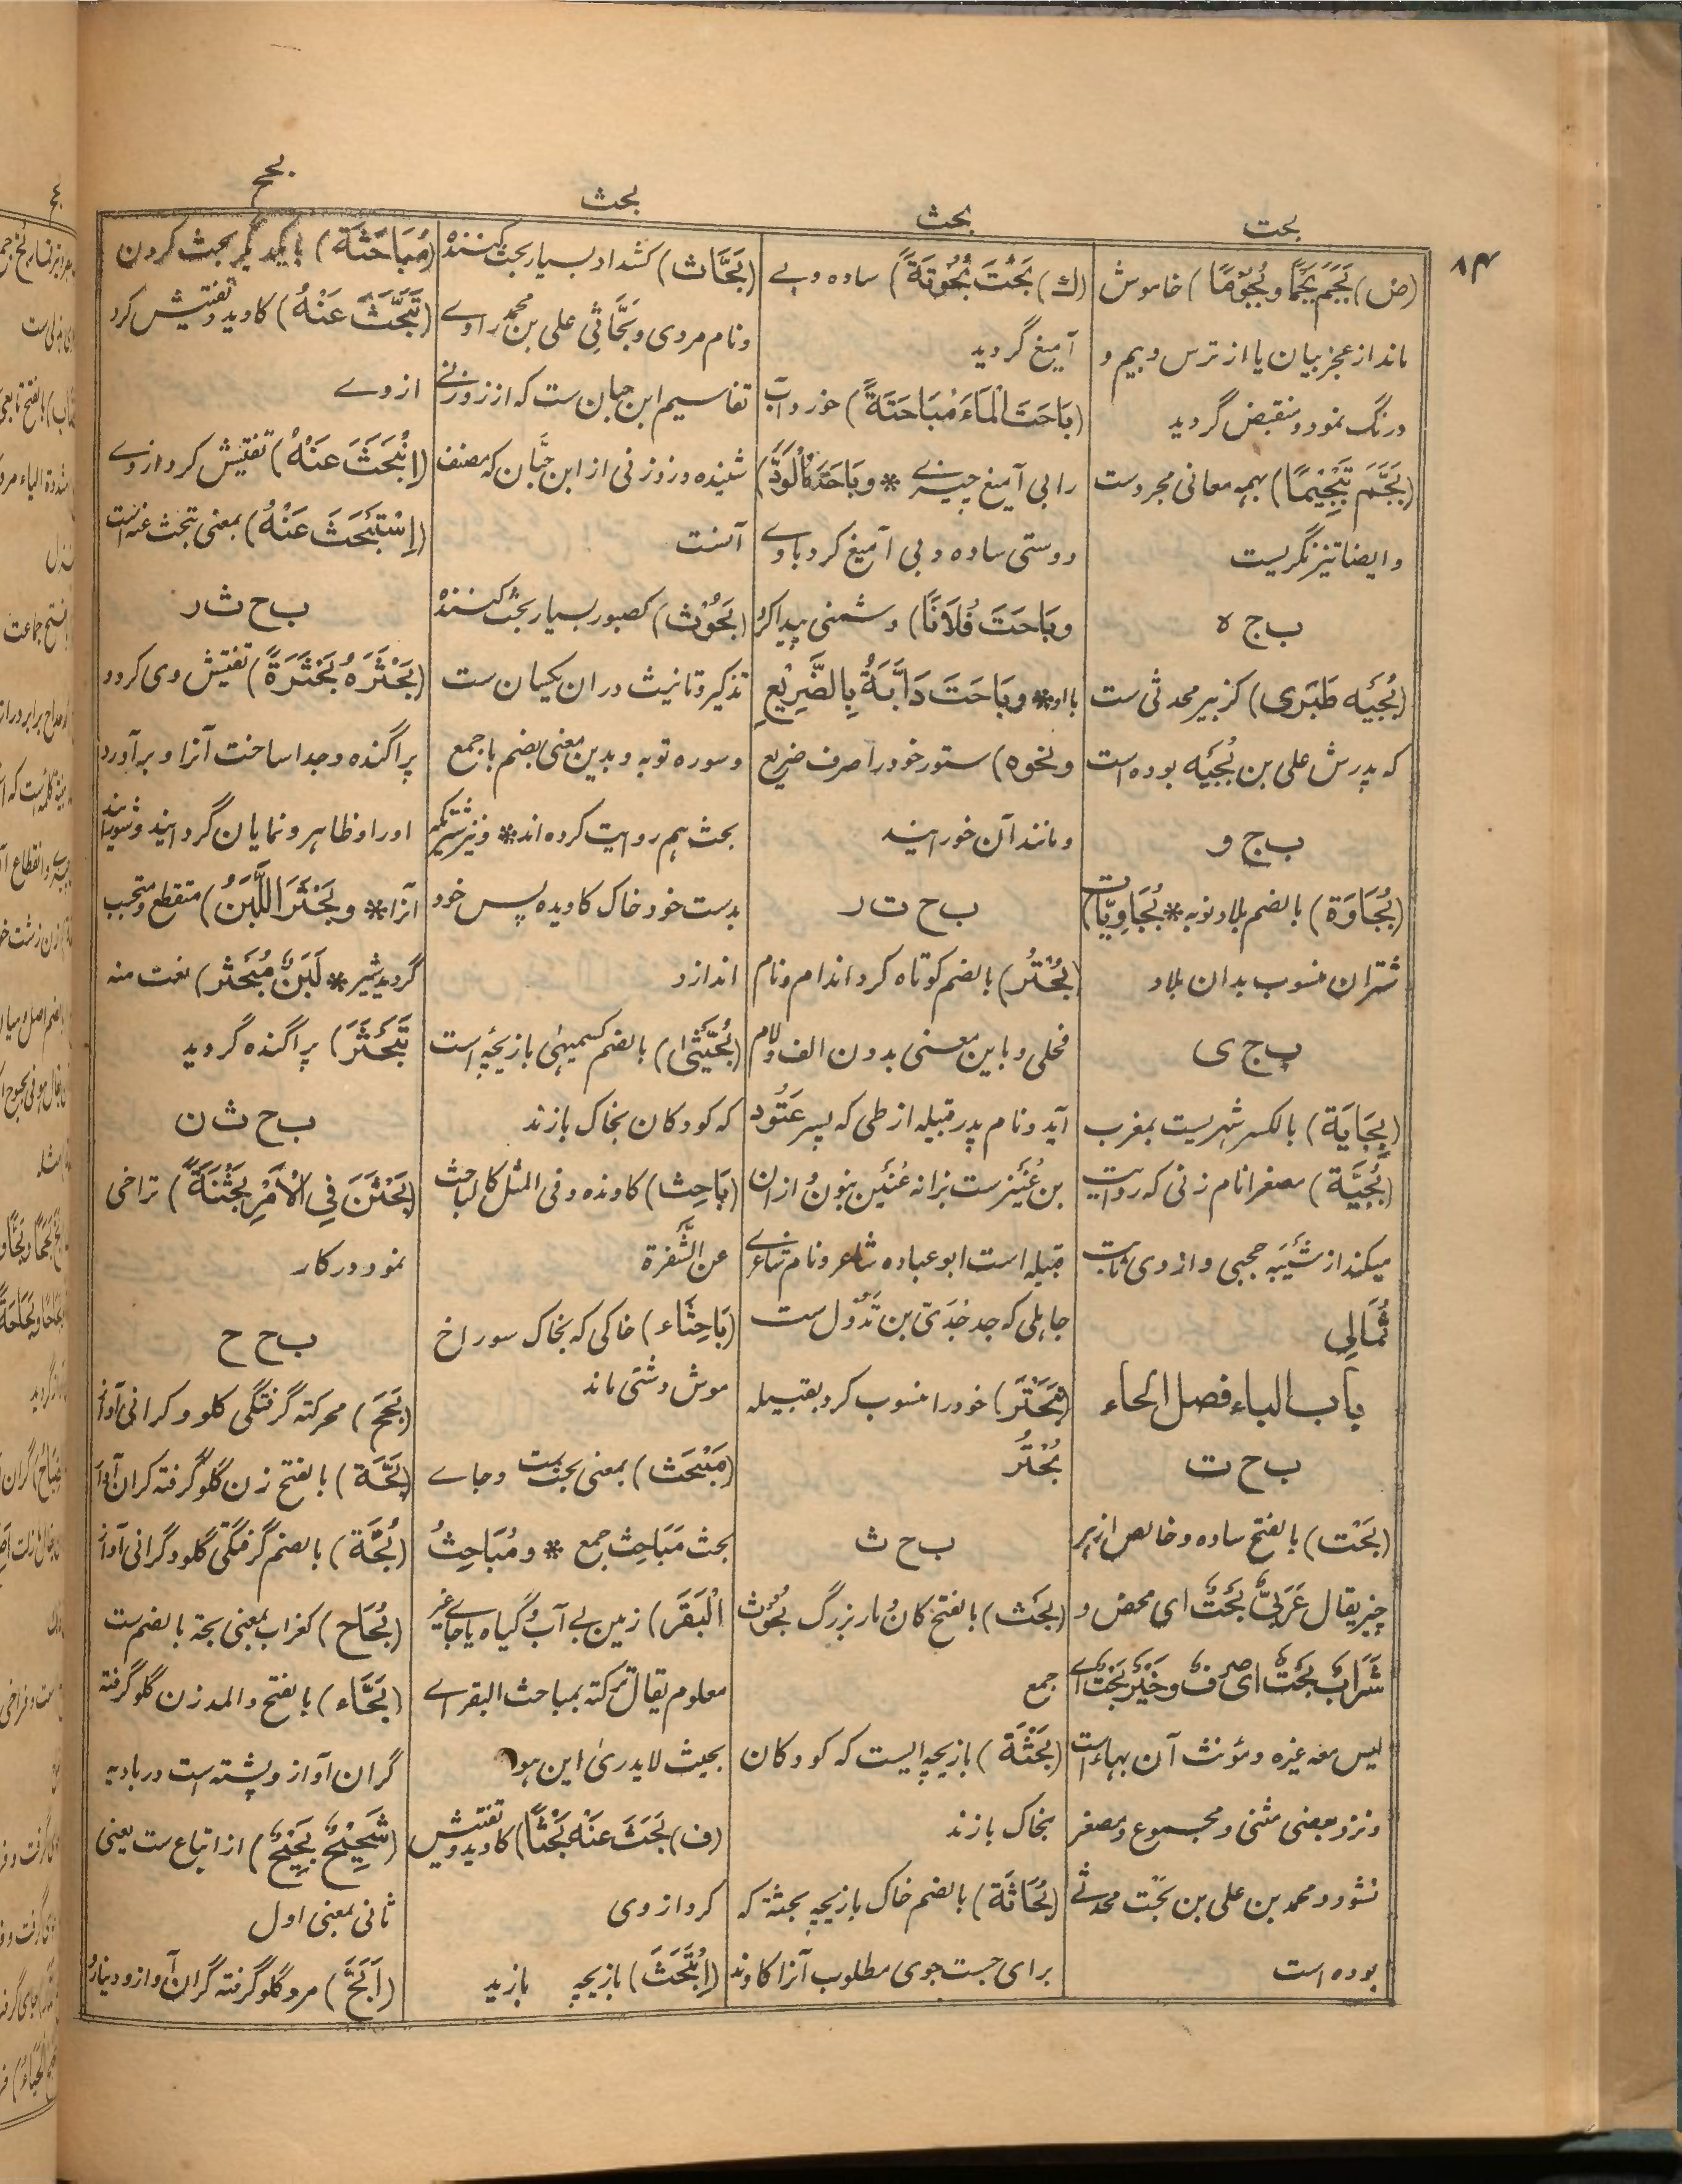 ۸۴
بحت
بحث
بحث
بحح
(ض) بَجَمَ بَجْمًا وبُجُوْمًا) خاموش
ماند از عجز بیان یا از ترس و بیم و
درنگ نمود و منقبض گردید
(بَجَّمَ تَبْجِيْمًا) بهمه معانی مجردست
و ایضا تیز نگریست
ب ج ه
(بُجَيْه طَبَرى) کزبیر محدثی ست
که پدرش علی بن بُجَيْه بوده است
ب ج و
(بُجَاوَة) بالضم بلاد نوبه * بُجَاوِيَّات)
شتران منسوب بدان بلاد
ب ج ی
(بِجَايَة) بالکسر شهریست بمغرب
(بُجَيَّة) مصغرا نام زنی که روایت
میکند از شَيْبَه حجبی و از وی ثابت
ثُمَالِي
باب الباء فصل الحاء
ب ح ت
(بَحْت) بالفتح ساده و خالص از هر
چیز یقال عَرَبِيٌّ بَحْتٌ ای محض و
شَرَابٌ بَحْتٌ ای صرفٌ وخَيْرٌ بَحْتٌ اے
لیس معه غیره و مؤنث آن بهاء است
و نزد بعضی مثنی و مجموع و مصغر
نشود و محمد بن علی بن بَحْت محدثے
بوده است
(ك) بَحُتَ بُحُوتَةً) ساده و بے
آمیغ گردید
(بَاحَتَ الْمَاءَ مُبَاحَتَةً) خورد آب
را بی آمیغ چیزے * وبَاحَتَهُ الْوَدَّ)
دوستی ساده و بی آمیغ کرد باوے
وبَاحَتَ فُلَانًا) دشمنی پیدا کرد
با او * وبَاحَتَ دَابَّتَهُ بِالضَّرِيْعِ
ونحوه) ستور خود را صرف ضریع
و مانند آن خورانید
ب ح ت ر
(بُحْتُر) بالضم کوتاه گرد اندام و نام
فحلی و باین معنی بدون الف و لام
آید و نام پدر قبیله از طی که پسر عَتُود
بن عُنَيْزست بزا نه عُنَيْن بنون و ازان
قبیله است ابو عباده شاعر و نام شاعرے
جاهلی که جد جُدَىّ بن تَدُول ست
(تَبَحْتَرَ) خود را منسوب کرد بقبیله
بُحْتُر
ب ح ث
(بَحْث) بالفتح کان و مار بزرگ بُحُوْث
جمع
(بَحْثَة) بازیچه ایست که کودکان
بخاک بازند
(بُحَاثَة) بالضم خاک بازیچه بحثة که
برای جست جوی مطلوب آنرا کاوند
(بَحَّاث) کشداد بسیار بحث کننده
و نام مردی و بَحَّاثِي علی بن محمد راوے
تقاسیم ابن حبان ست که از زوزنے
شنیده و زوزنی از ابن حَبَّان که مصنف
آنست
(بَحُوْث) کصبور بسیار بحث کننده
تذکیر و تانیث دران یکسان ست
و سوره توبه و بدین معنی بضم با جمع
بحث هم روایت کرده اند * و نیز شتریکه
بدست خود خاک کاویده پس خود
اندازد
(بُحَيْثٰى) بالضم کسمیهٰی بازیچه است
که کودکان بخاک بازند
(بَاحِث) کاونده و فی المثل کالباحث
عن الشَّفرة
(بَاحِثَاء) خاکی که بخاک سوراخ
موش دشتی ماند
(مَبْحَث) بمعنی بحث ست و جاے
بحث مَبَاحِث جمع * ومَبَاحِثُ
الْبَقَر) زمین بے آب و گیاه یا جاے غیر
معلوم یقال ترکته بمباحث البقر اے
بحیث لا یدریٰ این هو
(ف) بَحَثَ عَنْهُ بَحْثًا) کاوید و تفتیش
کرد از وی
(اِبْتَحَثَ) بازیچه بازید
(مُبَاحَثَة) با یکدیگر بحث کردن
(تَبَحَّثَ عَنْهُ) کاوید و تفتیش کرد
از وے
(اِنْبَحَثَ عَنْهُ) تفتیش کرد از وے
(اِسْتَبْحَثَ عَنْهُ) بمعنی تبحث عنه است
ب ح ث ر
(بَحْثَرَهُ بَحْثَرَةً) تفتیش وی کرد و
پراگنده و جدا ساخت آنرا و برآورد
او را و ظاهر و نمایان گردانید و شورانید
آنرا * وبَحْثَرَ اللَّبَنُ) متقطع و متحبب
گردید شیر * لَبَنٌ مُبَحْثَر) نعت منه
تَبَحْثَرَ) پراگنده گردید
ب ح ث ن
(بَحْثَنَ فِي الْأَمْرِ بَحْثَنَةً) تراخی
نمود در کار
ب ح ح
(بَحَح) محرکته گرفتگی گلو و گرانی آواز
(بَحَّة) بالفتح زن گلو گرفته گران آواز
(بُحَّة) بالضم گرفتگی گلو و گرانی آواز
(بُحَاح) کغراب بمعنی بحة بالضم ست
(بَحَّاء) بالفتح و المد زن گلو گرفته
گران آواز و پشته است در بادیه
(شَحِيْحٌ بَحِيْحٌ) از اتباع ست یعنی
ثانی بمعنی اول
(اَبَحّ) مرد گلو گرفته گران آواز و دینار